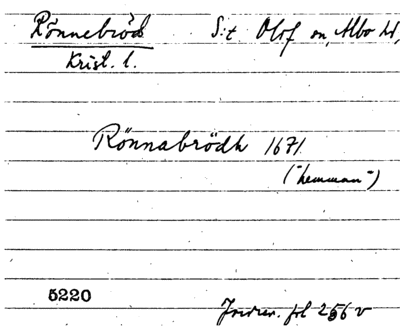 Rönnebröd S:t Olof sn, Albo hd,
Krist. l.
Rönnabrödh 1671
("hemman")
5220
Jordrev. fol 256 v